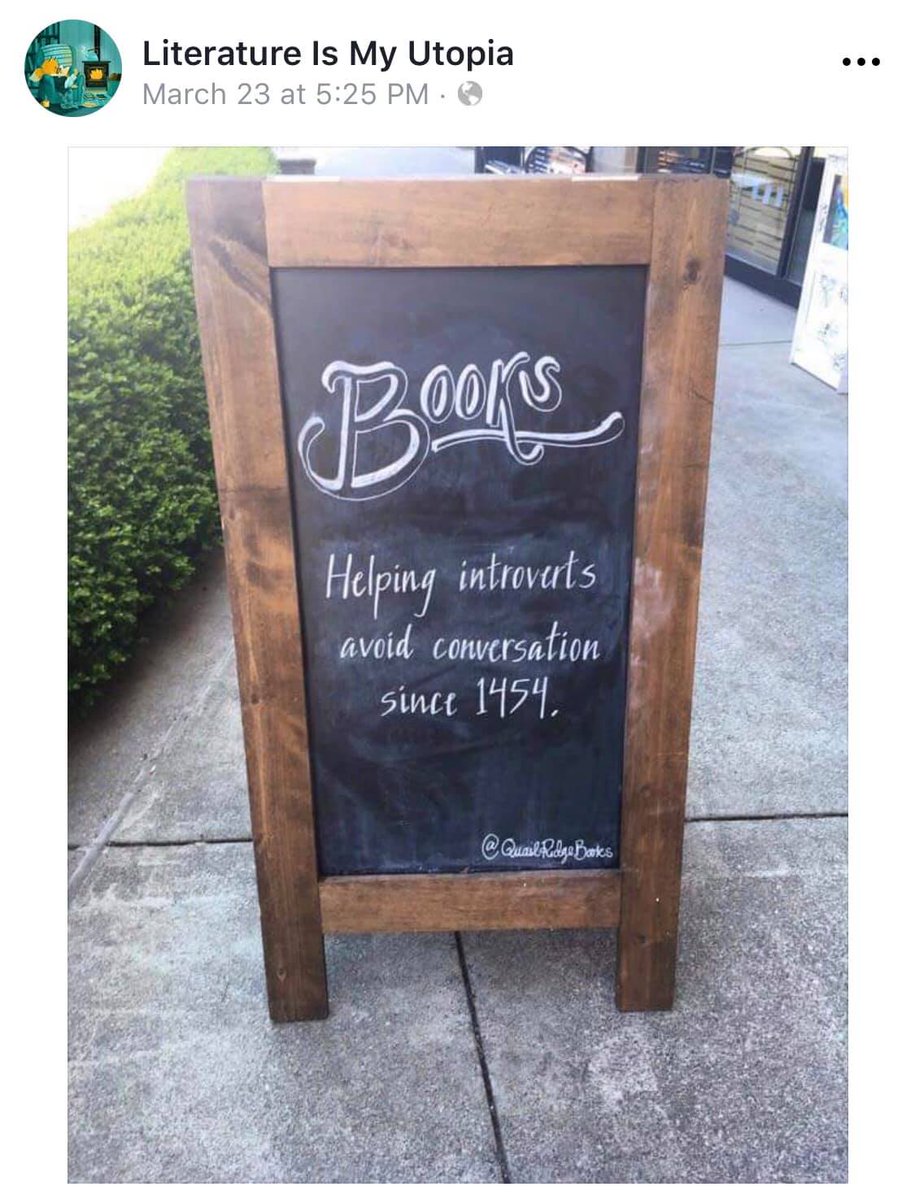 Literature Is My Utopia
March 23 at 5:25 PM ·
Books
Helping introverts
avoid conversation
since 1454.
@QuailRidgeBooks